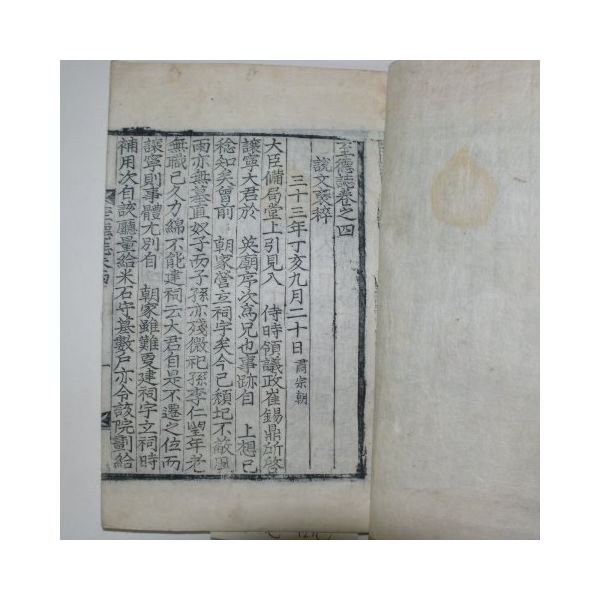 至德誌卷之四
說文裒稡
三十三年丁亥九月二十日 肅宗朝
大臣備局堂上引見入 侍時領議政崔錫鼎所啓
讓寧大君於 英廟序次爲兄也事跡自 上想已
稔知矣曾前 朝家營立祠宇矣今已頹圮不蔽風
雨亦無墓直奴子而子孫亦殘微祀孫李仁望年老
無職已久力綿不能建祠云大君自是不遷之位而
讓寧則事體尤別自 朝家雖難更建祠宇立祠時
補用次自該廳量給米石守墓數戶亦令該院劃給